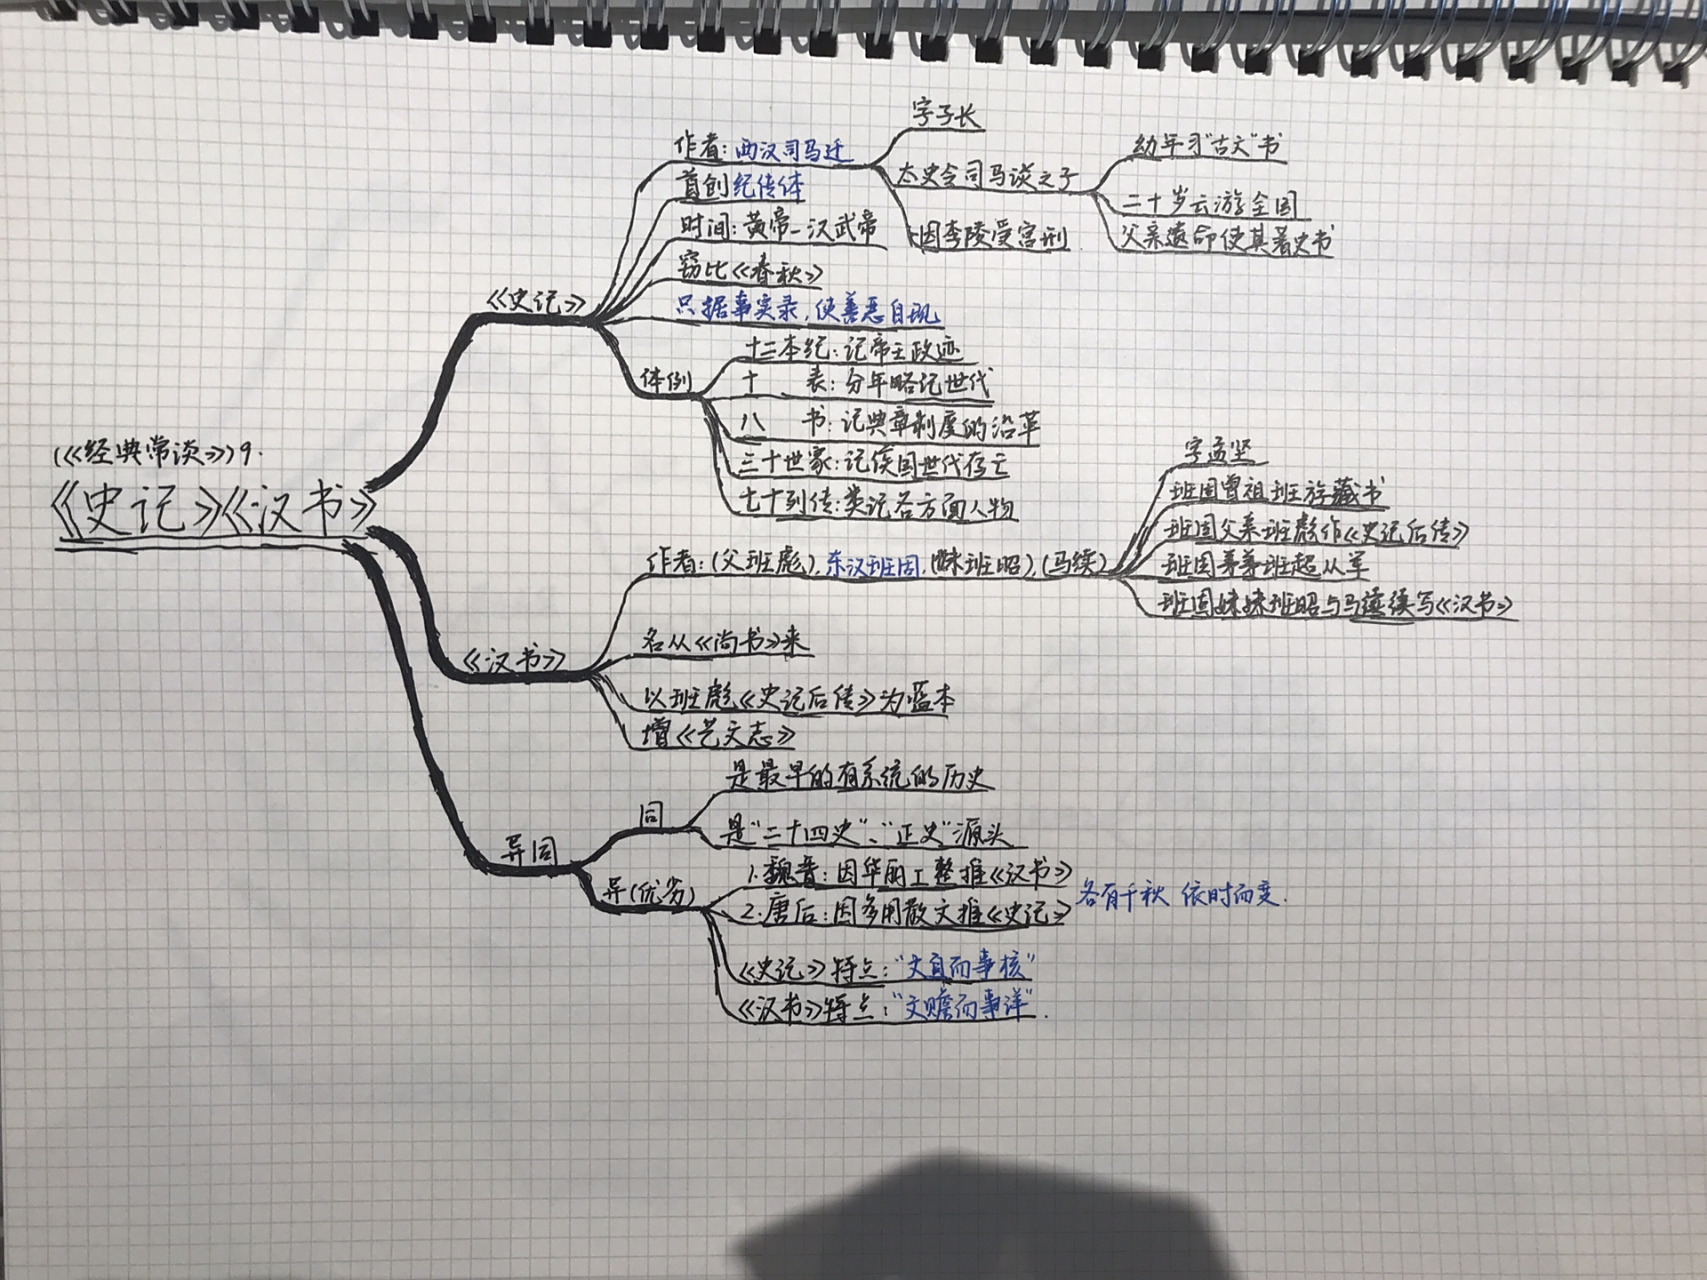 (《经典常谈》)9.
《史记》《汉书》
《史记》
作者:西汉司马迁
字子长
太史令司马谈之子
幼年习"古文"书
二十岁云游全国
父亲遗命使其著史书
因李陵受宫刑
首创纪传体
时间:黄帝-汉武帝
窃比《春秋》
只据事实录,使善恶自现
体例
十二本纪:记帝王政迹
十 表:分年略记世代
八 书:记典章制度的沿革
三十世家:记侯国世代存亡
七十列传:类记各方面人物
《汉书》
作者:(父班彪),东汉班固,(妹班昭),(马续)
字孟坚
班固曾祖班斿藏书
班固父亲班彪作《史记后传》
班固弟弟班超从军
班固妹妹班昭与马续续写《汉书》
名从《尚书》来
以班彪《史记后传》为蓝本
增《艺文志》
异同
同
是最早的有系统的历史
是"二十四史"、"正史"源头
异(优劣)
1.魏晋:因华丽工整推《汉书》
2.唐后:因多用散文推《史记》
各有千秋 依时而变.
《史记》特点:"文直而事核"
《汉书》特点:"文赡而事详".